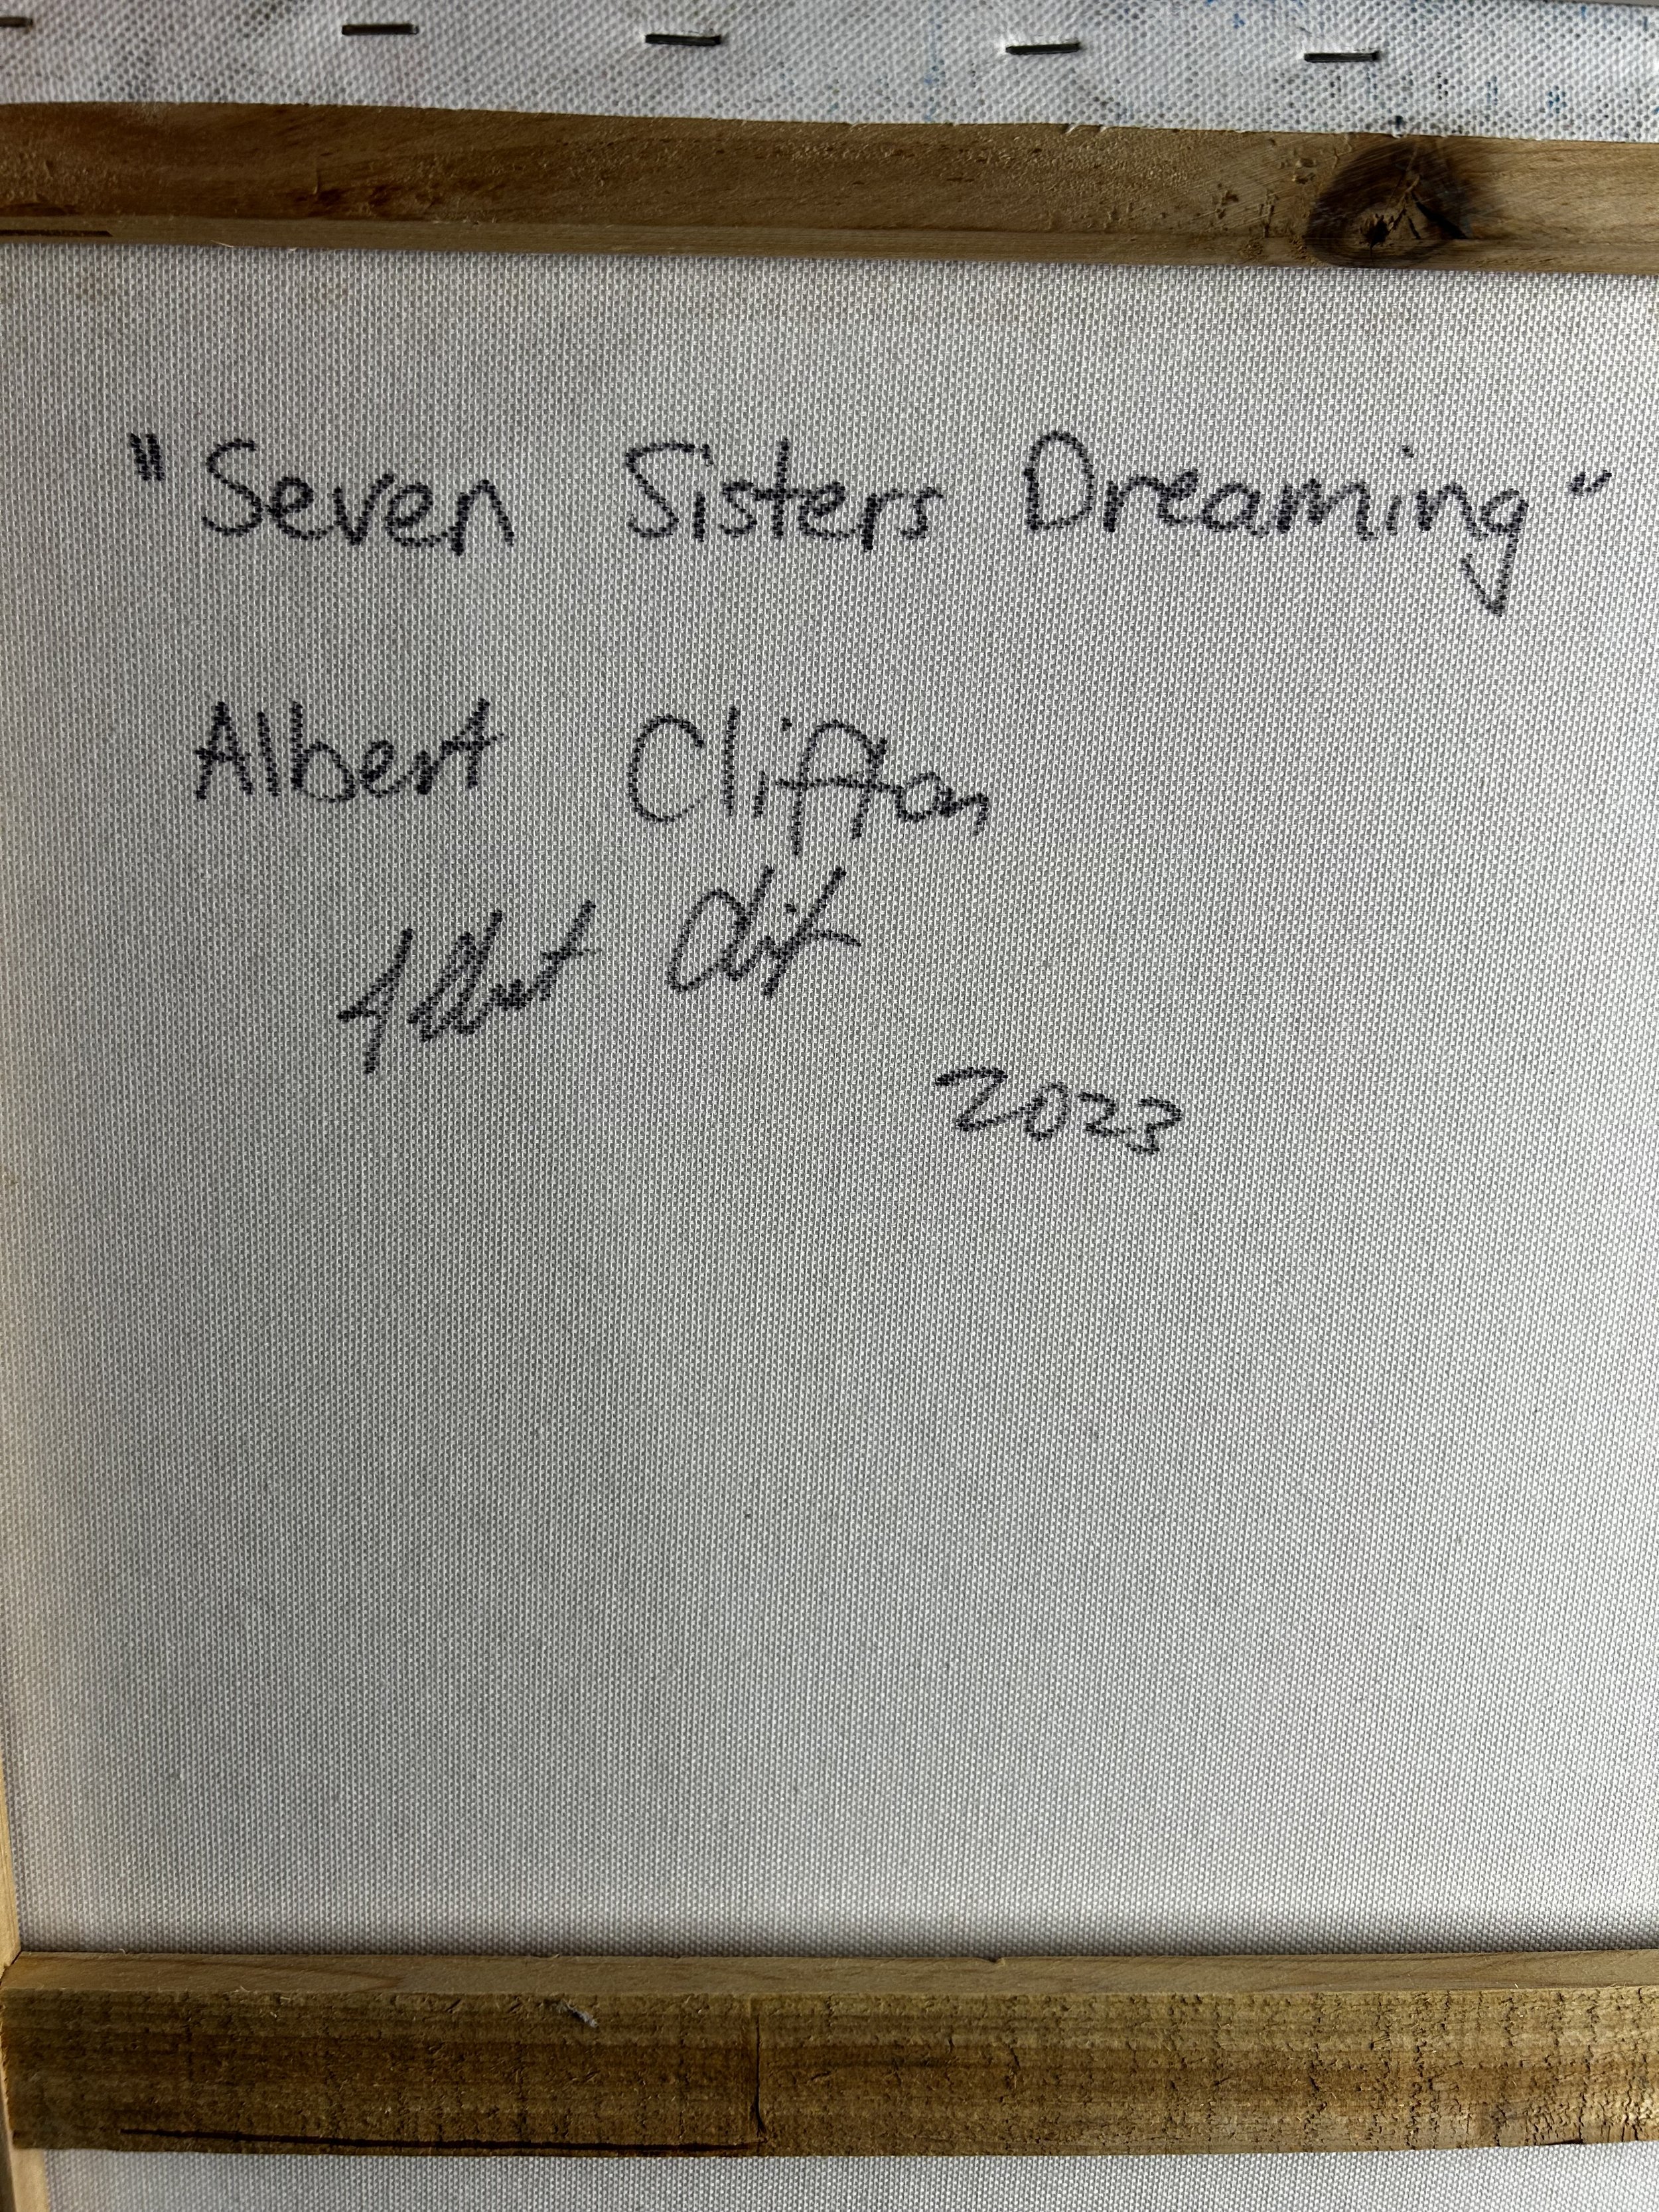 "Seven Sisters Dreaming"
Albert Clifton
Albert Clif
2023